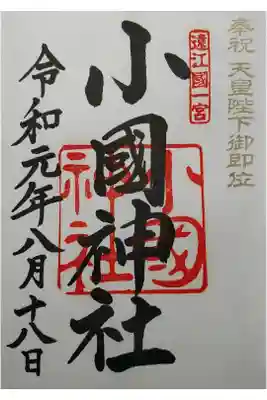 奉祝 天皇陛下御即位
遠江國一宮
小國神社
小國神社
令和元年八月十八日